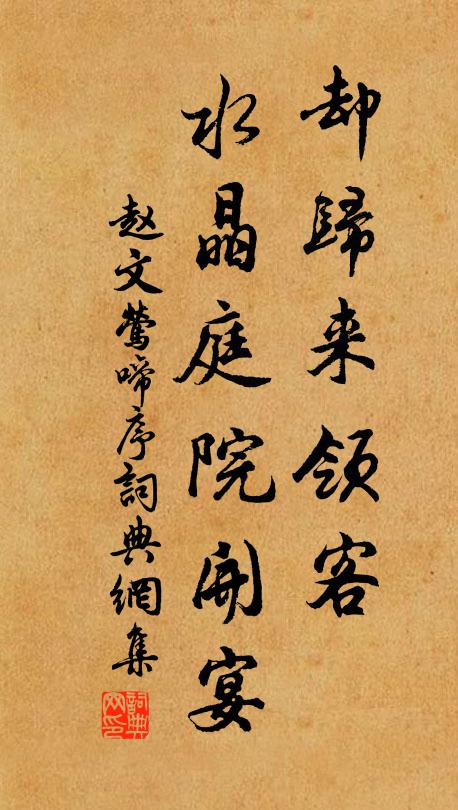 却歸来領客
水晶庭院開宴
赵文鶯啼序詞典網集
詞典网印